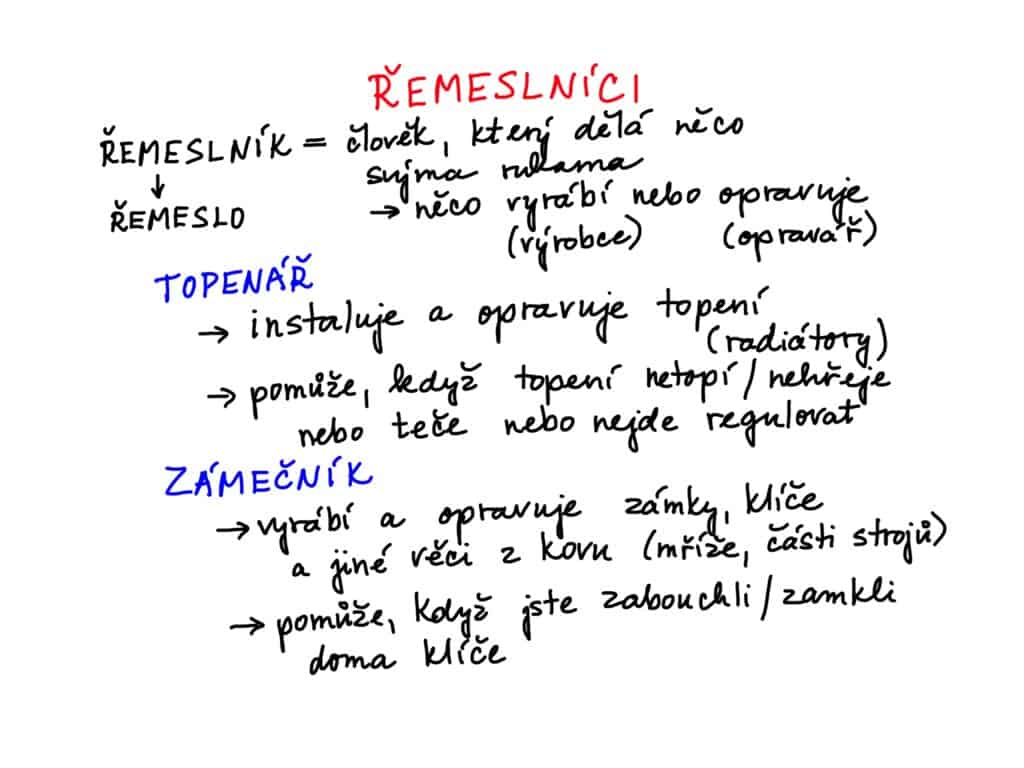 ŘEMESLNÍCI
ŘEMESLNÍK = člověk, který dělá něco
svýma rukama
↓
ŘEMESLO → něco vyrábí nebo opravuje
(výrobce) (opravář)
TOPENÁŘ
→ instaluje a opravuje topení
(radiátory)
→ pomůže, když topení netopí/nehřeje
nebo teče nebo nejde regulovat
ZÁMEČNÍK
→ vyrábí a opravuje zámky, klíče
a jiné věci z kovu (mříže, části strojů)
→ pomůže, když jste zabouchli/zamkli
doma klíče